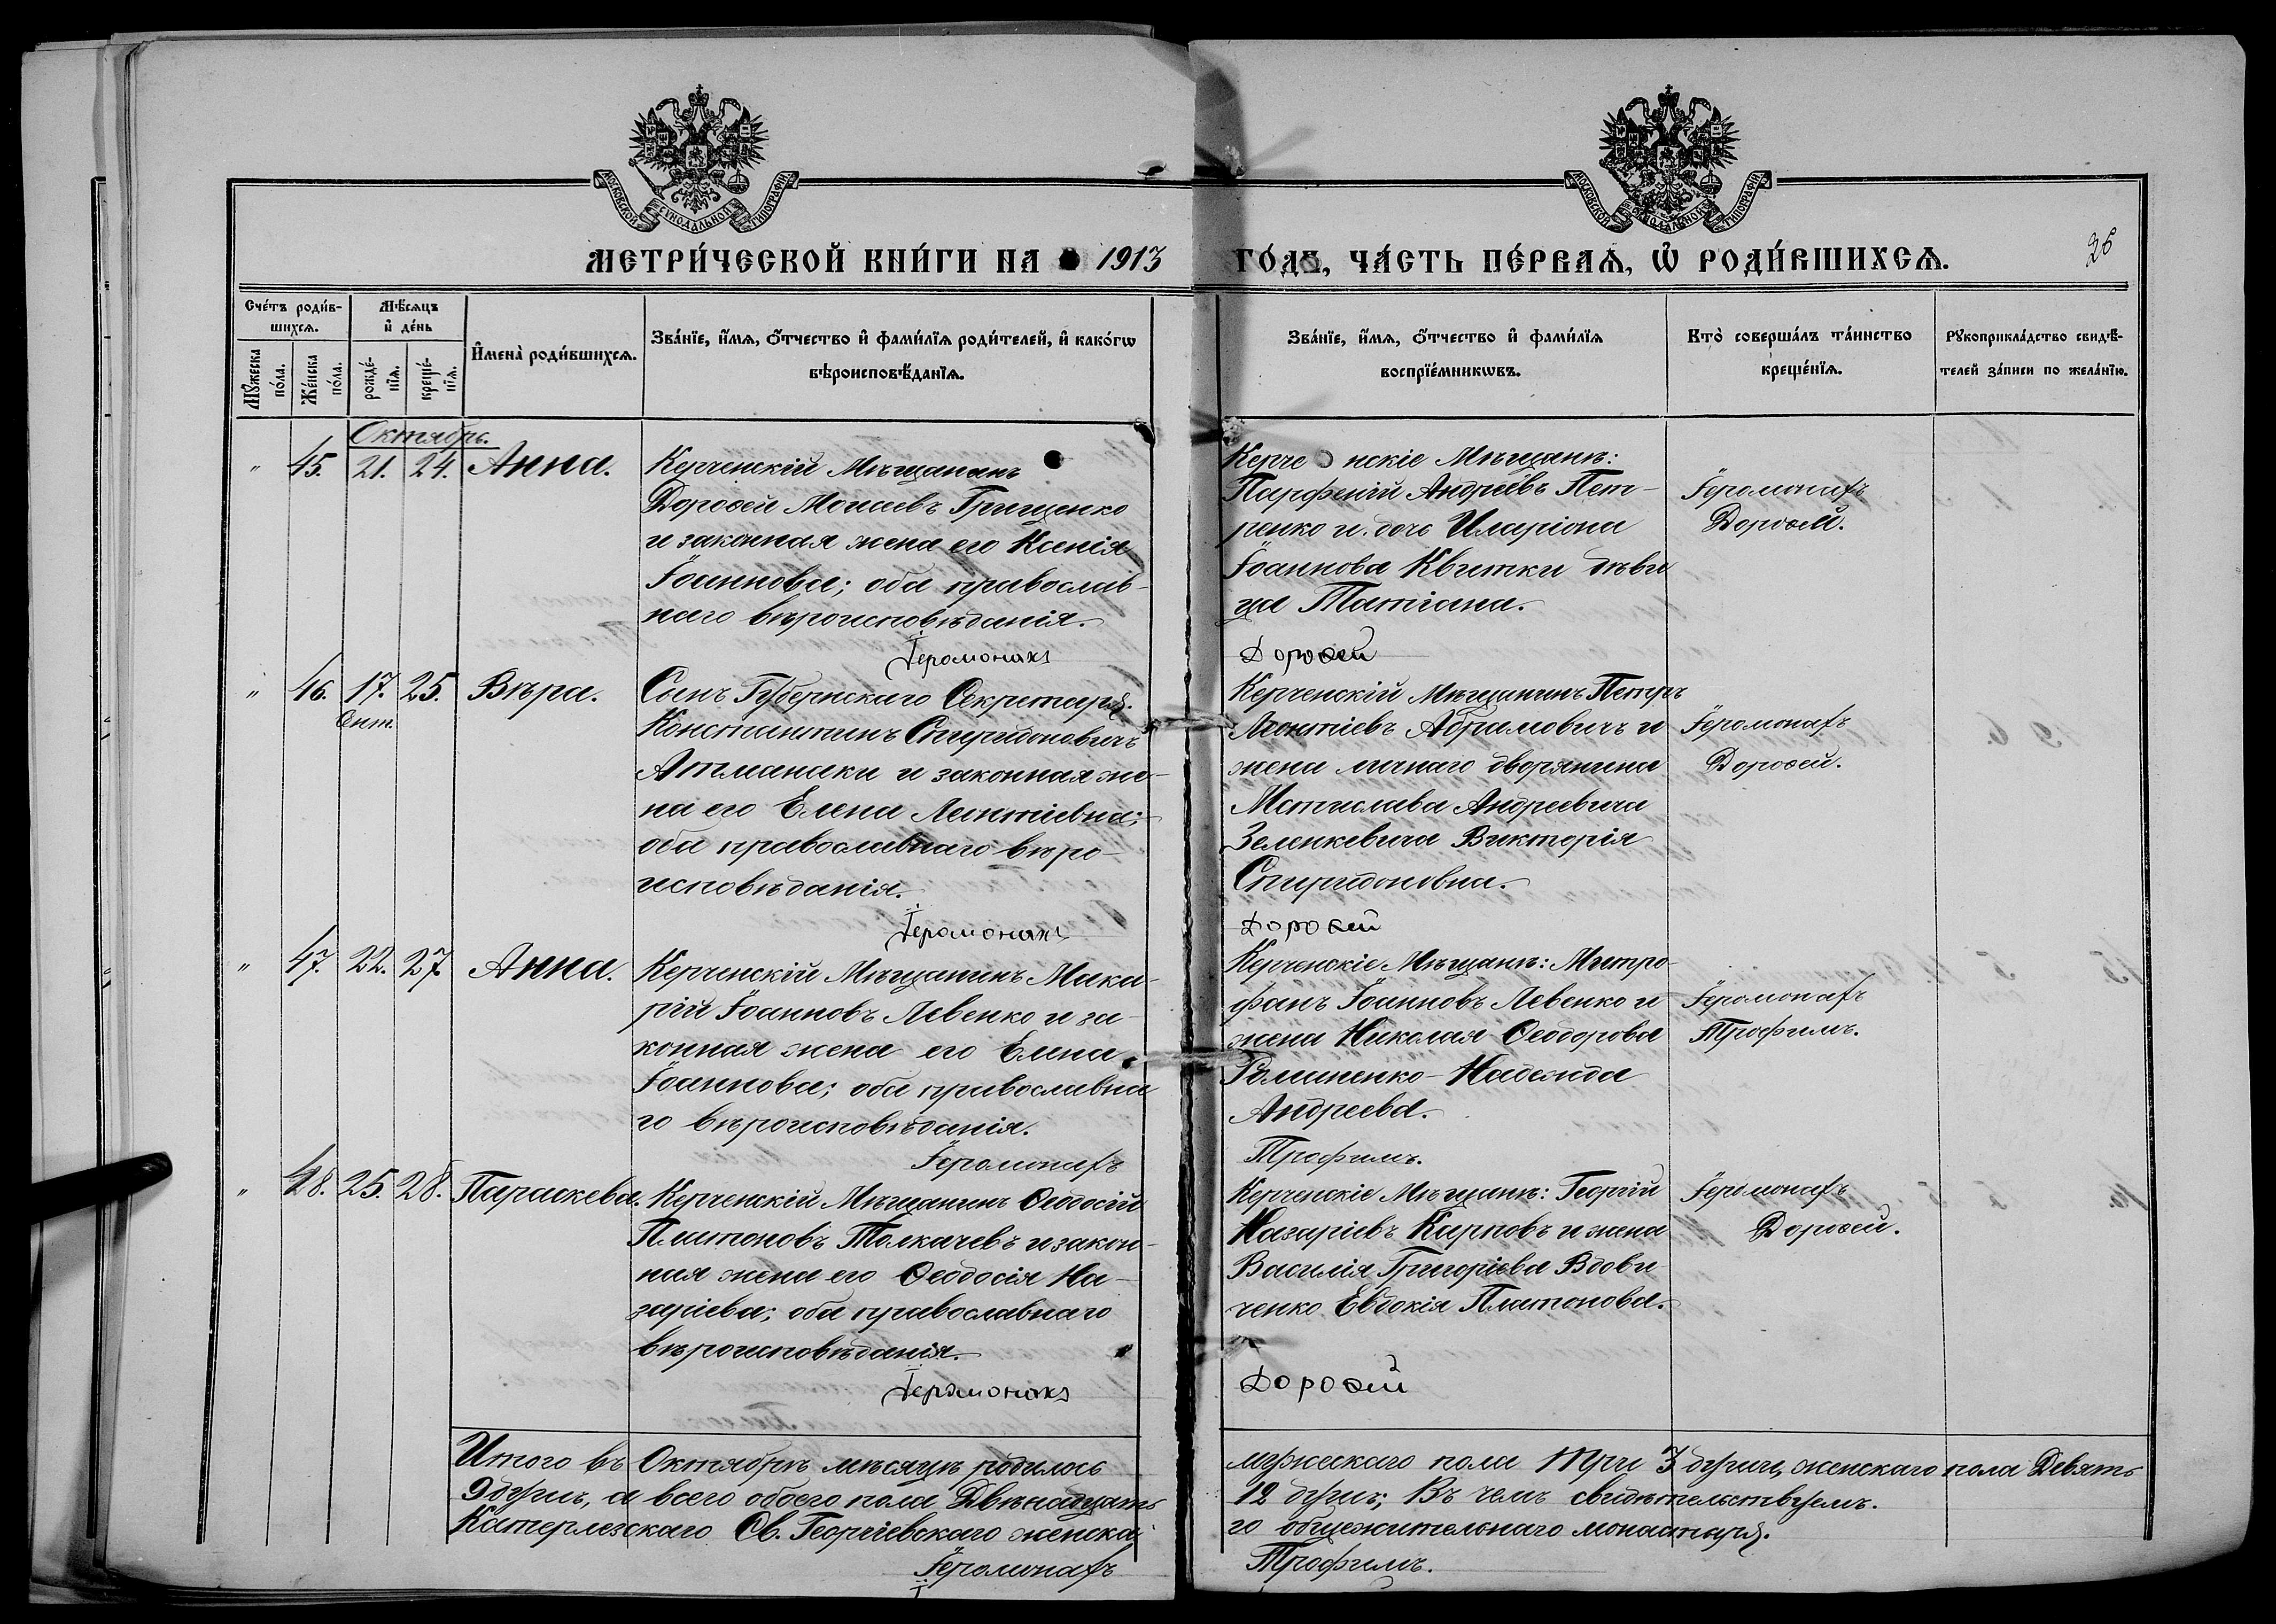 МОСКОВСКОЙ СѴНОДАЛЬНОЙ ТИПОГРАФІИ
МОСКОВСКОЙ СѴНОДАЛЬНОЙ ТИПОГРАФІИ
МЕТРИ́ЧЕСКОЙ КНИ́ГИ НА 1913
ГО́ДЪ, ЧА́СТЬ ПЕ́РВАѦ, Ѡ҆ РОДИ́ВШИХСѦ.
26
Сче́тъ роди́в-
шихсѧ.
Мѣ́сѧцъ
и҆ де́нь
Мꙋ́жеска
по́ла.
Же́нска
по́ла.
рожде́-
нїѧ.
креще́-
нїѧ.
И҆мена̀ роди́вшихсѧ.
Зва́нїе, и҆́мѧ, ѻ҆́тчество и҆ фами́лїѧ роди́телей, и҆ како́гѡ
вѣроисповѣ́данїѧ.
Зва́нїе, и҆́мѧ, ѻ҆́тчество и҆ фами́лїѧ
воспрїе́мникѡвъ.
Кто̀ соверша́лъ та́инство
креще́нїѧ.
Рꙋкоприкла́дство свидѣ́-
телей за́писи по жела́нїю.
Октябрь.
" 45. 21. 24. Анна.
Керченскій Мѣщанинъ
Дороѳей Моисеевъ Грищенко
и законная жена его Ксенія
Іоаннова; оба православ-
наго вѣроисповѣданія.
Іеромонахъ
Керченскіе Мѣщане:
Парфеній Андреевъ Пет-
ренко и дочь Иларіона
Іоаннова Квитки дѣви
ца Татіана.
Дороѳей
Іеромонахъ
Дороѳей.
" 46. 17. 25. Вѣра.
Сент.
Сынъ Губернскаго Секретаря
Константинъ Спиридоновичъ
Атманаки и законная же-
на его Елена Леонтіевна;
оба православнаго вѣро-
исповѣданія.
Іеромонахъ
Керченскій Мѣщанинъ Петръ
Леонтіевъ Абрамовичъ и
жена личнаго дворянина
Мстислава Андреевича
Зеленкевича Викторія
Спиридоновна.
Дороѳей
Іеромонахъ
Дороѳей.
" 47. 22. 27 Анна.
Керченскій Мѣщанинъ Мака-
рій Іоанновъ Левенко и за-
конная жена его Елена
Іоаннова; оба православна
го вѣроисповѣданія.
Іеромонахъ
Керченскіе Мѣщане: Митро-
фанъ Іоанновъ Левенко и
жена Николая Ѳеодорова
Романенко - Надежда
Андреева.
Трофимъ.
Іеромонахъ
Трофимъ.
" 48. 25. 28. Параскева.
Керченскій Мѣщанинъ Ѳеодосій
Платоновъ Толкачевъ и закон-
ная жена его Ѳеодосія На-
заріева; оба православнаго
вѣроисповѣданія.
Іеромонахъ
Керченскіе Мѣщане: Георгій
Назаріевъ Карповъ и жена
Василія Григорьева Вдови
ченко Евдокія Платонова.
Дороѳей
Іеромонахъ
Дороѳей.
Итого въ Октябрѣ мѣсяцѣ родилось мужескаго пола Три 3 души, женскаго пола Девять
9 душъ, а всего обоего пола Двѣнадцать 12 душъ; Въ чемъ свидѣтельствуемъ.
Катерлезскаго Св. Георгіевскаго женска го общежительнаго монастыря.
Іеромонахъ Трофимъ.